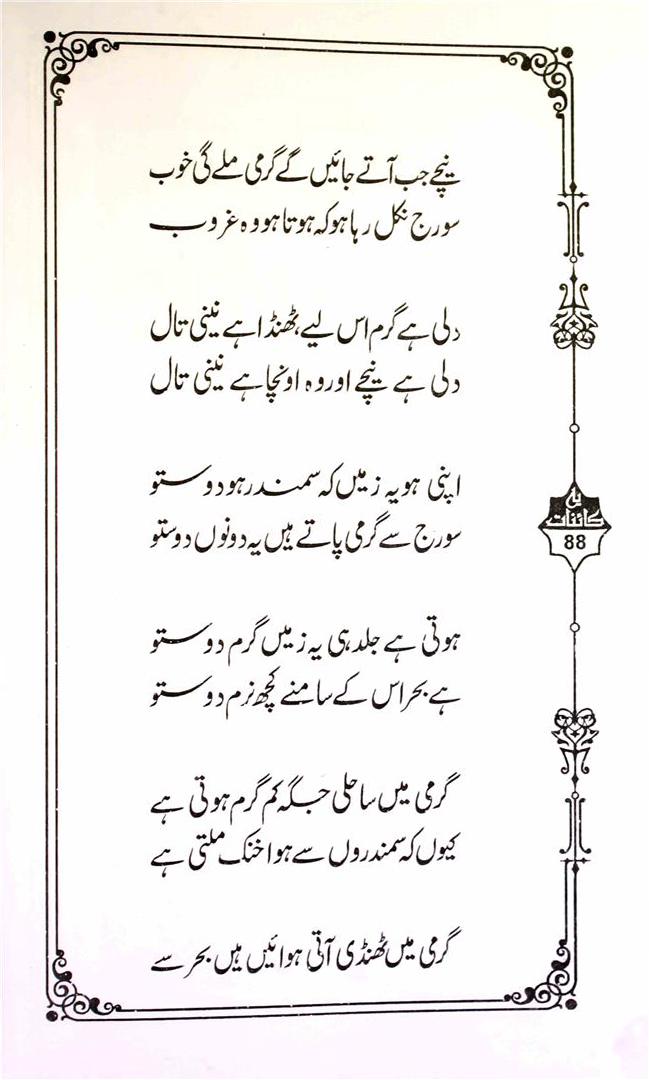 نیچے جب آتے جائیں گے گرمی ملے گی خوب
سورج نکل رہا ہو کہ ہوتا ہو وہ غروب
دلی ہے گرم اس لیے، ٹھنڈا ہے نینی تال
دلی ہے نیچے اور وہ اونچا ہے نینی تال
اپنی ہو یہ زمیں کہ سمندر ہو دوستو
سورج سے گرمی پاتے ہیں یہ دونوں دوستو
ہوتی ہے جلد ہی یہ زمیں گرم دوستو
ہے بحر اس کے سامنے کچھ نرم دوستو
گرمی میں ساحلی جگہ کم گرم ہوتی ہے
کیوں کہ سمندروں سے ہوا خنک ملتی ہے
گرمی میں ٹھنڈی آتی ہوائیں ہیں بحر سے
یہ
کائنات
88